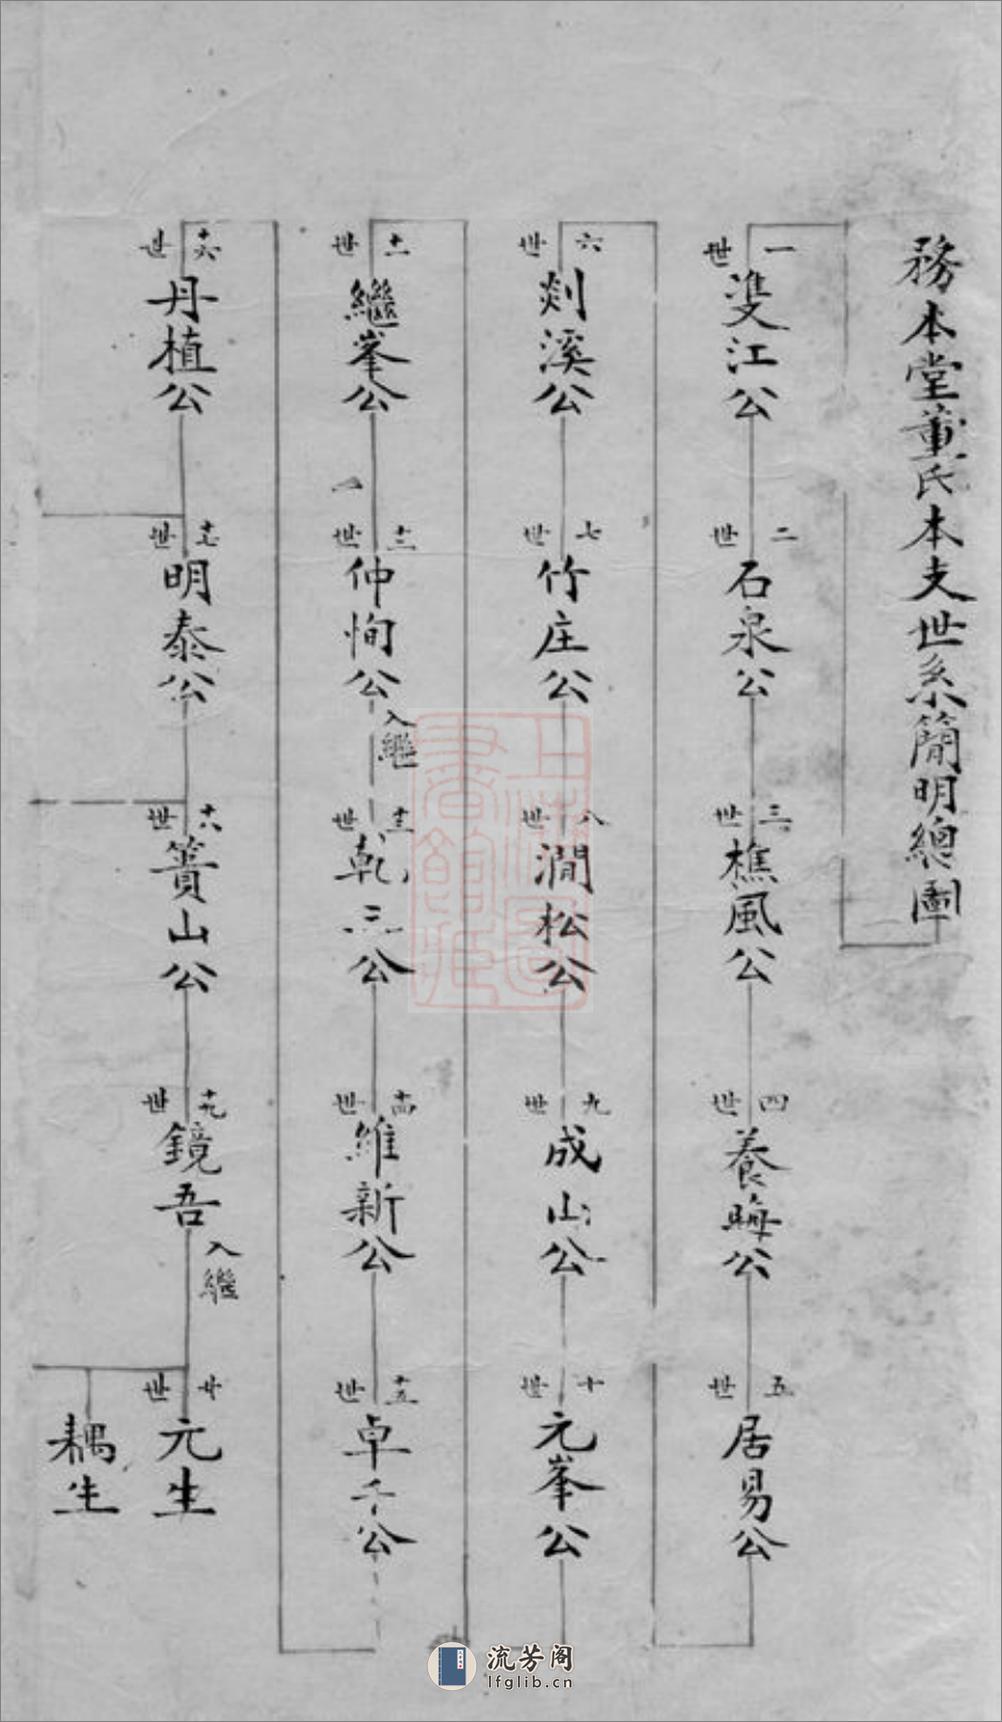 務本堂董氏本支世系簡明總圖
一世
雙江公
二世
石泉公
三世
樵風公
四世
養晦公
五世
居易公
六世
剡溪公
七世
竹庄公
八世
澗松公
九世
成山公
十世
元峯公
十一世
繼峯公
十二世
仲恂公
入繼
十三世
乾三公
十四世
維新公
十五世
卓千公
十六世
丹植公
十七世
明泰公
十八世
簣山公
十九世
鏡吾
入繼
廿世
元生
耦生
上海圖書館藏
流芳阁
lfglib.cn